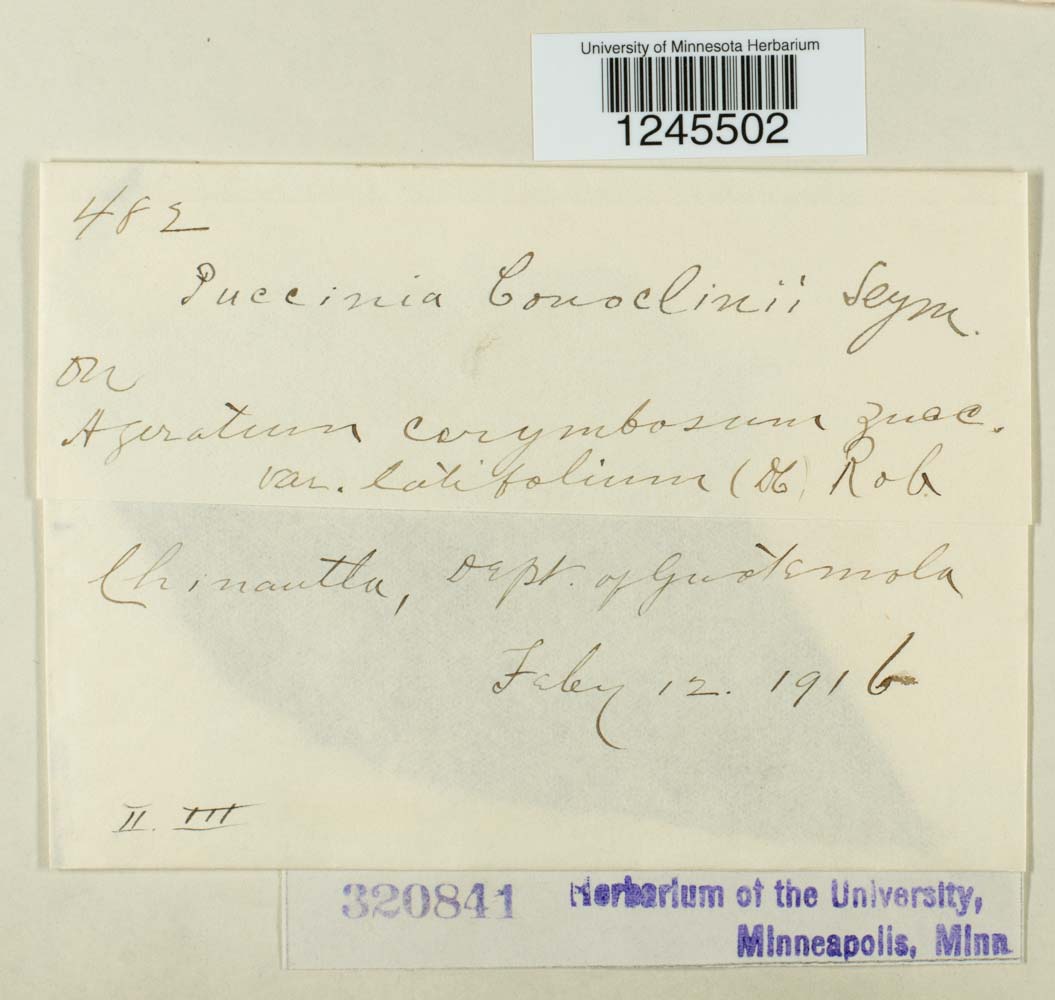 University of Minnesota Herbarium
1245502
482
Puccinia Conoclinii Seym.
on
Ageratum corymbosum Zucc.
var. latifolium (DC) Rob.
Chinautla, Dept. of Guatemala
Feby 12. 1916
II. III
320841 Herbarium of the University,
Minneapolis, Minn